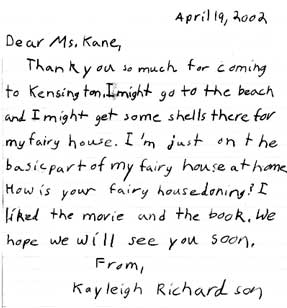 April 19, 2002
Dear Ms. Kane,
Thank you so much for coming
to Kensington. I might go to the beach
and I might get some shells there for
my fairy house. I'm just on the
basic part of my fairy house at home.
How is your fairy house doning? I
liked the movie and the book. We
hope we will see you soon.
From,
Kayleigh Richardson